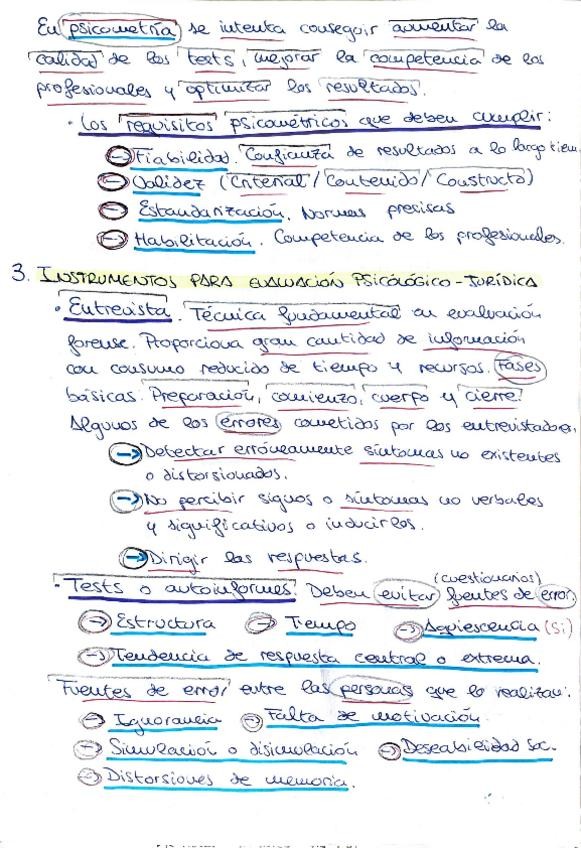 En psicometría se intenta conseguir aumentar la
calidad de los tests, mejorar la competencia de los
profesionales y optimizar los resultados.
• Los requisitos psicométricos que deben cumplir:
→ Fiabilidad. Confianza de resultados a lo largo tiem
→ Validez (Criterial / Contenido / Constructo)
→ Estandarización. Normas precisas
→ Habilitación. Competencia de los profesionales.
3. INSTRUMENTOS PARA EVALUACIÓN PSICOLÓGICO-JURÍDICA
• Entrevista. Técnica fundamental en evaluación
forense. Proporciona gran cantidad de información
con consumo reducido de tiempo y recursos. Fases
básicas. Preparación, comienzo, cuerpo y cierre.
Algunos de los errores cometidos por los entrevistadores
→ Detectar erróneamente síntomas no existentes
o distorsionados.
→ No percibir signos o síntomas no verbales
y significativos o inducirlos.
→ Dirigir las respuestas.
(cuestionarios)
• Tests o autoinformes. Deben evitar fuentes de error
→ Estructura → Tiempo → Aquiescencia (Sí)
→ Tendencia de respuesta central o extrema.
Fuentes de error entre las personas que lo realizan:
→ Ignorancia → Falta de motivación.
→ Simulación o disimulación → Deseabilidad Soc.
→ Distorsiones de memoria.